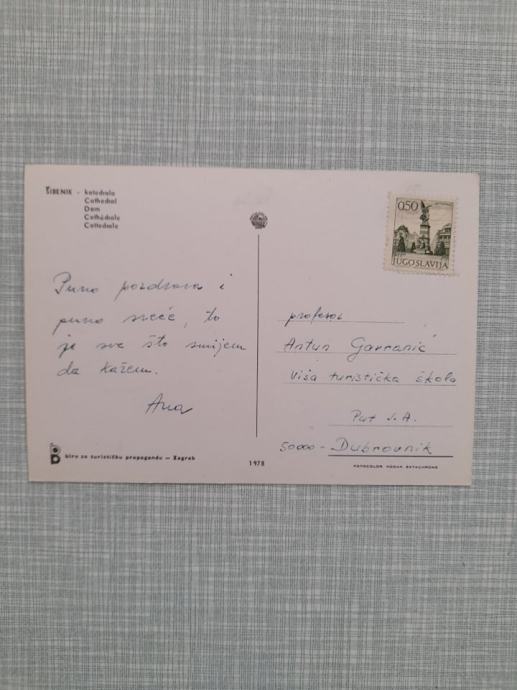 ŠIBENIK - katedrala
Cathedral
Dom
Cathédrale
Cattedrale
0,50
JUGOSLAVIJA
Puno pozdrava i
puno sreće, to
je sve što smijem
da kažem.
Ana
profesor
Antun
Viša turistička škola
Put J.A.
50000 - Dubrovnik
biro za turističku propagandu — Zagreb
1978
FOTOCOLOR KODAK EKTACHROME